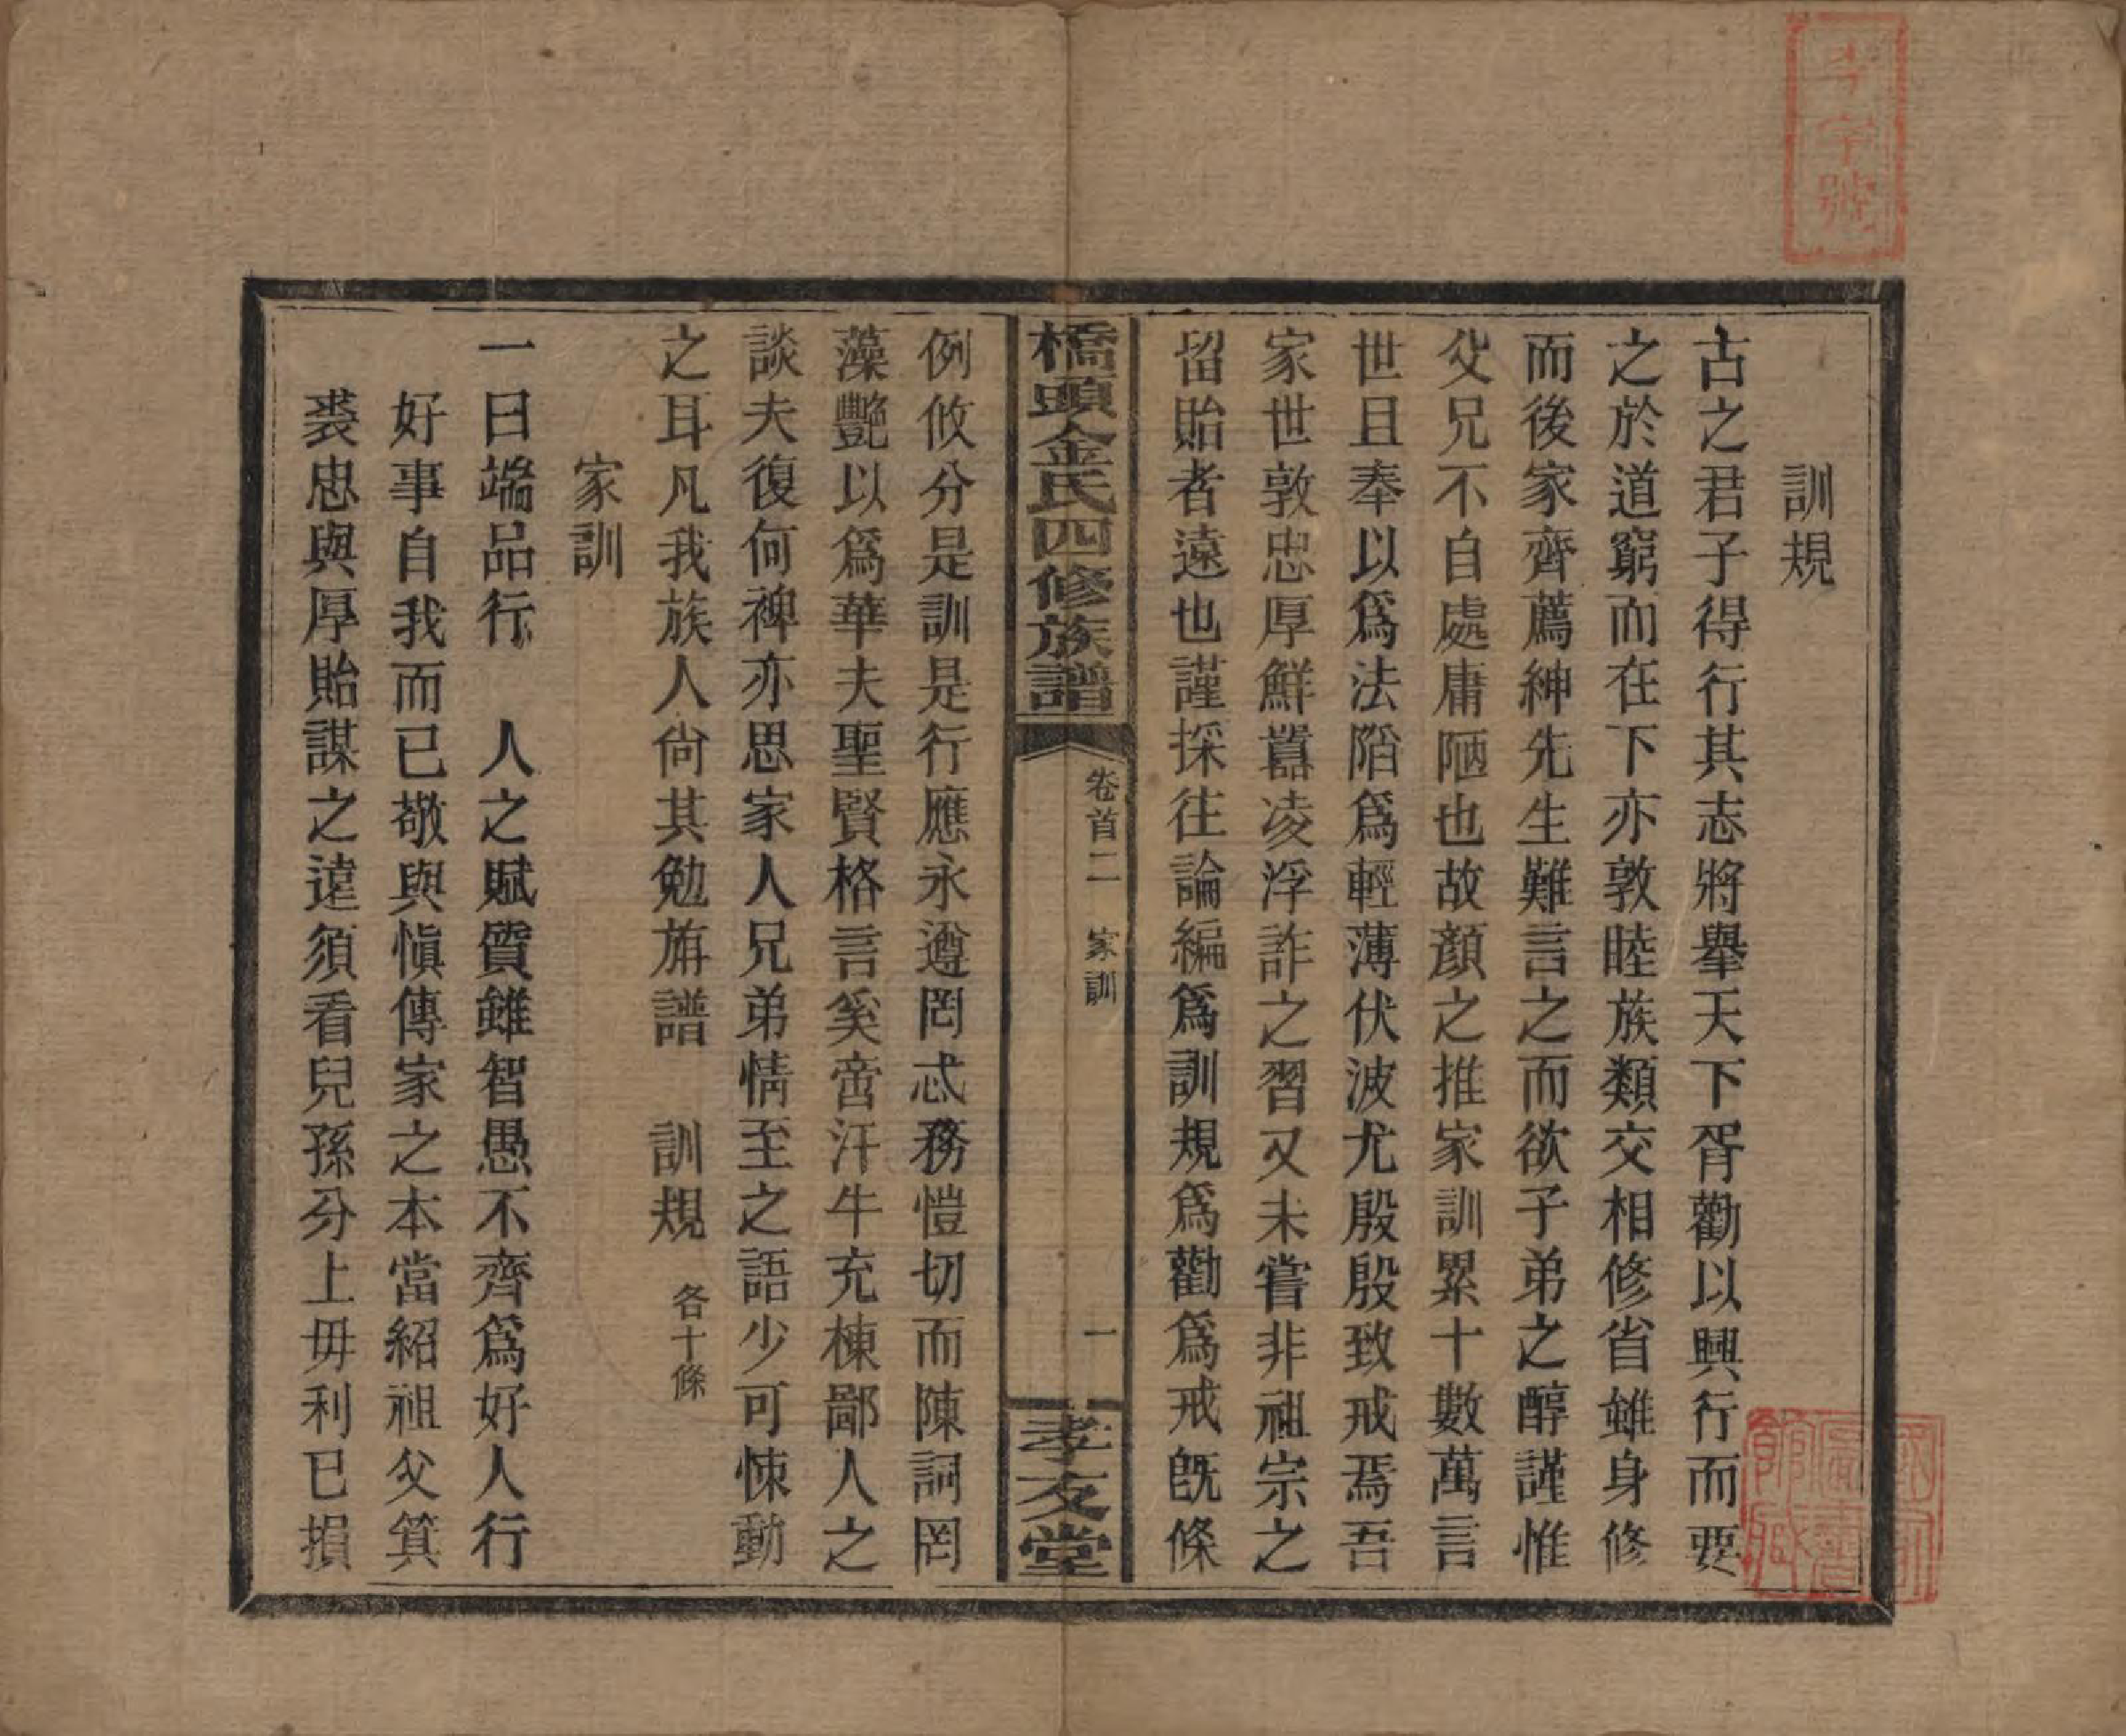 訓規
古之君子得行其志將舉天下胥勸以興行而要
之於道窮而在下亦敦睦族類交相修省雖身修
而後家齊薦紳先生難言之而欲子弟之醇謹惟
父兄不自處庸陋也故顏之推家訓累十數萬言
世且奉以爲法陷爲輕薄伏波尤殷殷致戒焉吾
家世敦忠厚鮮囂凌浮詐之習又未嘗非祖宗之
留貽者遠也謹採往論編爲訓規爲勸爲戒既條
橋頭金氏四修族譜
卷首二 家訓
一
孝友堂
例攸分是訓是行應永遵罔忒務愷切而陳詞罔
藻艷以爲華夫聖賢格言奚啻汗牛充棟鄙人之
談夫復何裨亦思家人兄弟情至之語少可悚動
之耳凡我族人尚其勉旃譜 訓規 各十條
家訓
一曰端品行 人之賦質雖智愚不齊爲好人行
好事自我而已敬與愼傳家之本當紹祖父箕
裘忠與厚貽謀之遠須看兒孫分上毋利已損
字號
國家圖書館藏